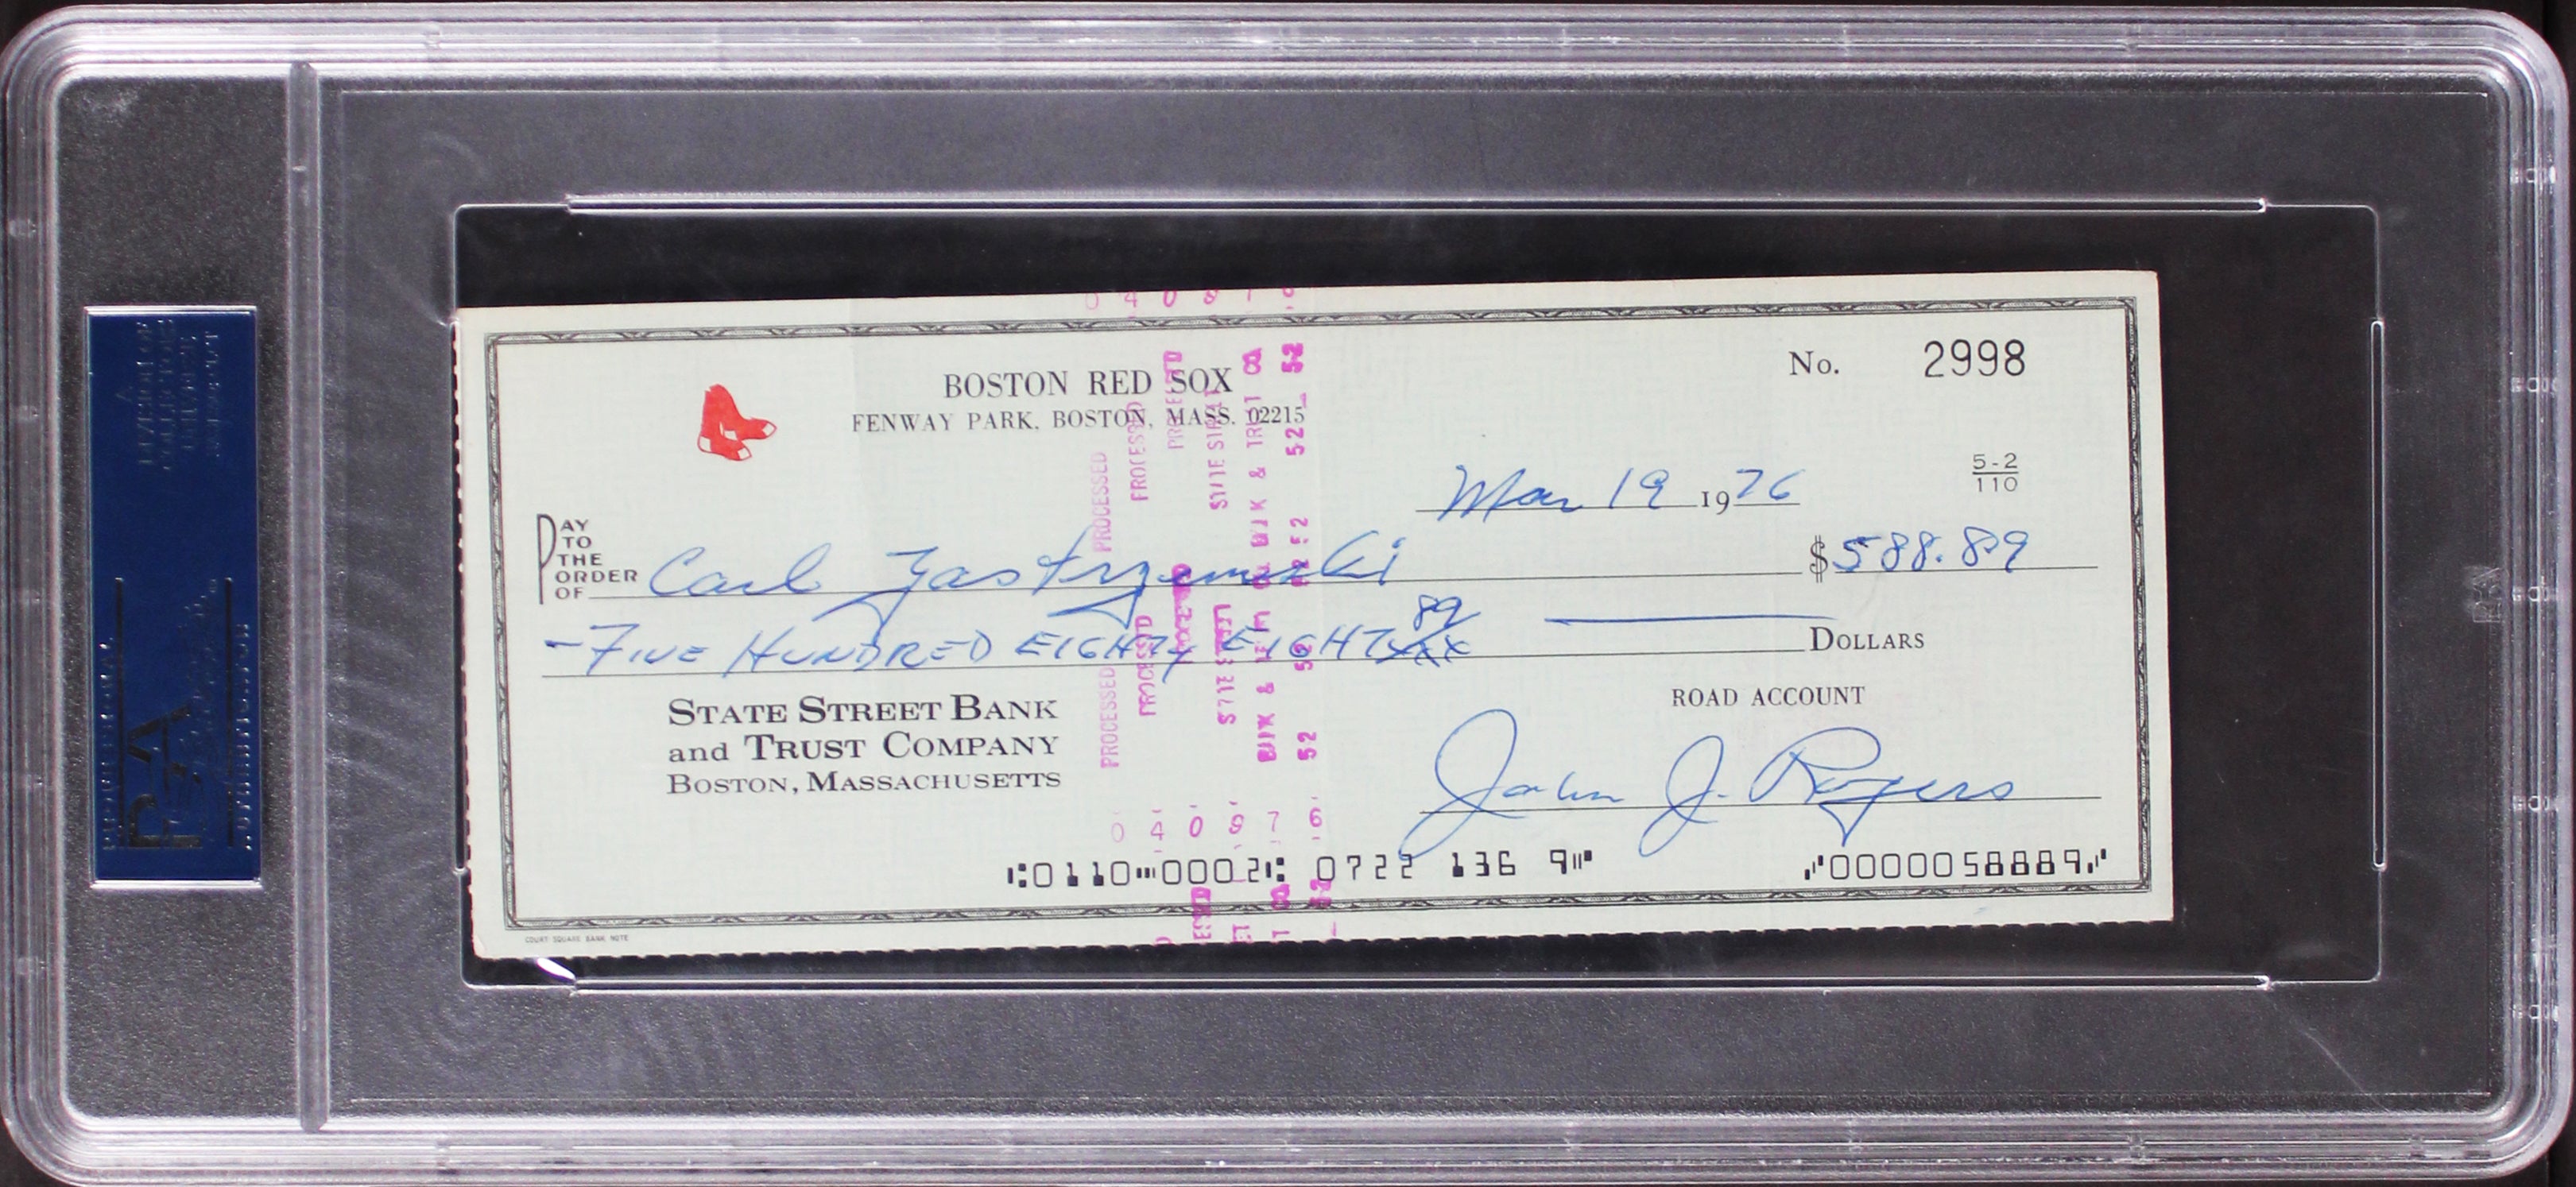 BOSTON RED SOX
FENWAY PARK, BOSTON, MASS. 02215
No. 2998
Mar 19 1976
5-2
110
PAY TO THE ORDER OF Carl Yastrzemski $588.89
- FIVE HUNDRED EIGHTY EIGHT 89/xx DOLLARS
STATE STREET BANK
and TRUST COMPANY
BOSTON, MASSACHUSETTS
ROAD ACCOUNT
John J. Rogers
⑆0110⑉0002⑆ 0722 136 9⑈ ⑇0000058889⑇
COURT SQUARE BANK NOTE
PROCESSED PROCESSED
PROCESSED
0 4 0 8 7 6
PSA